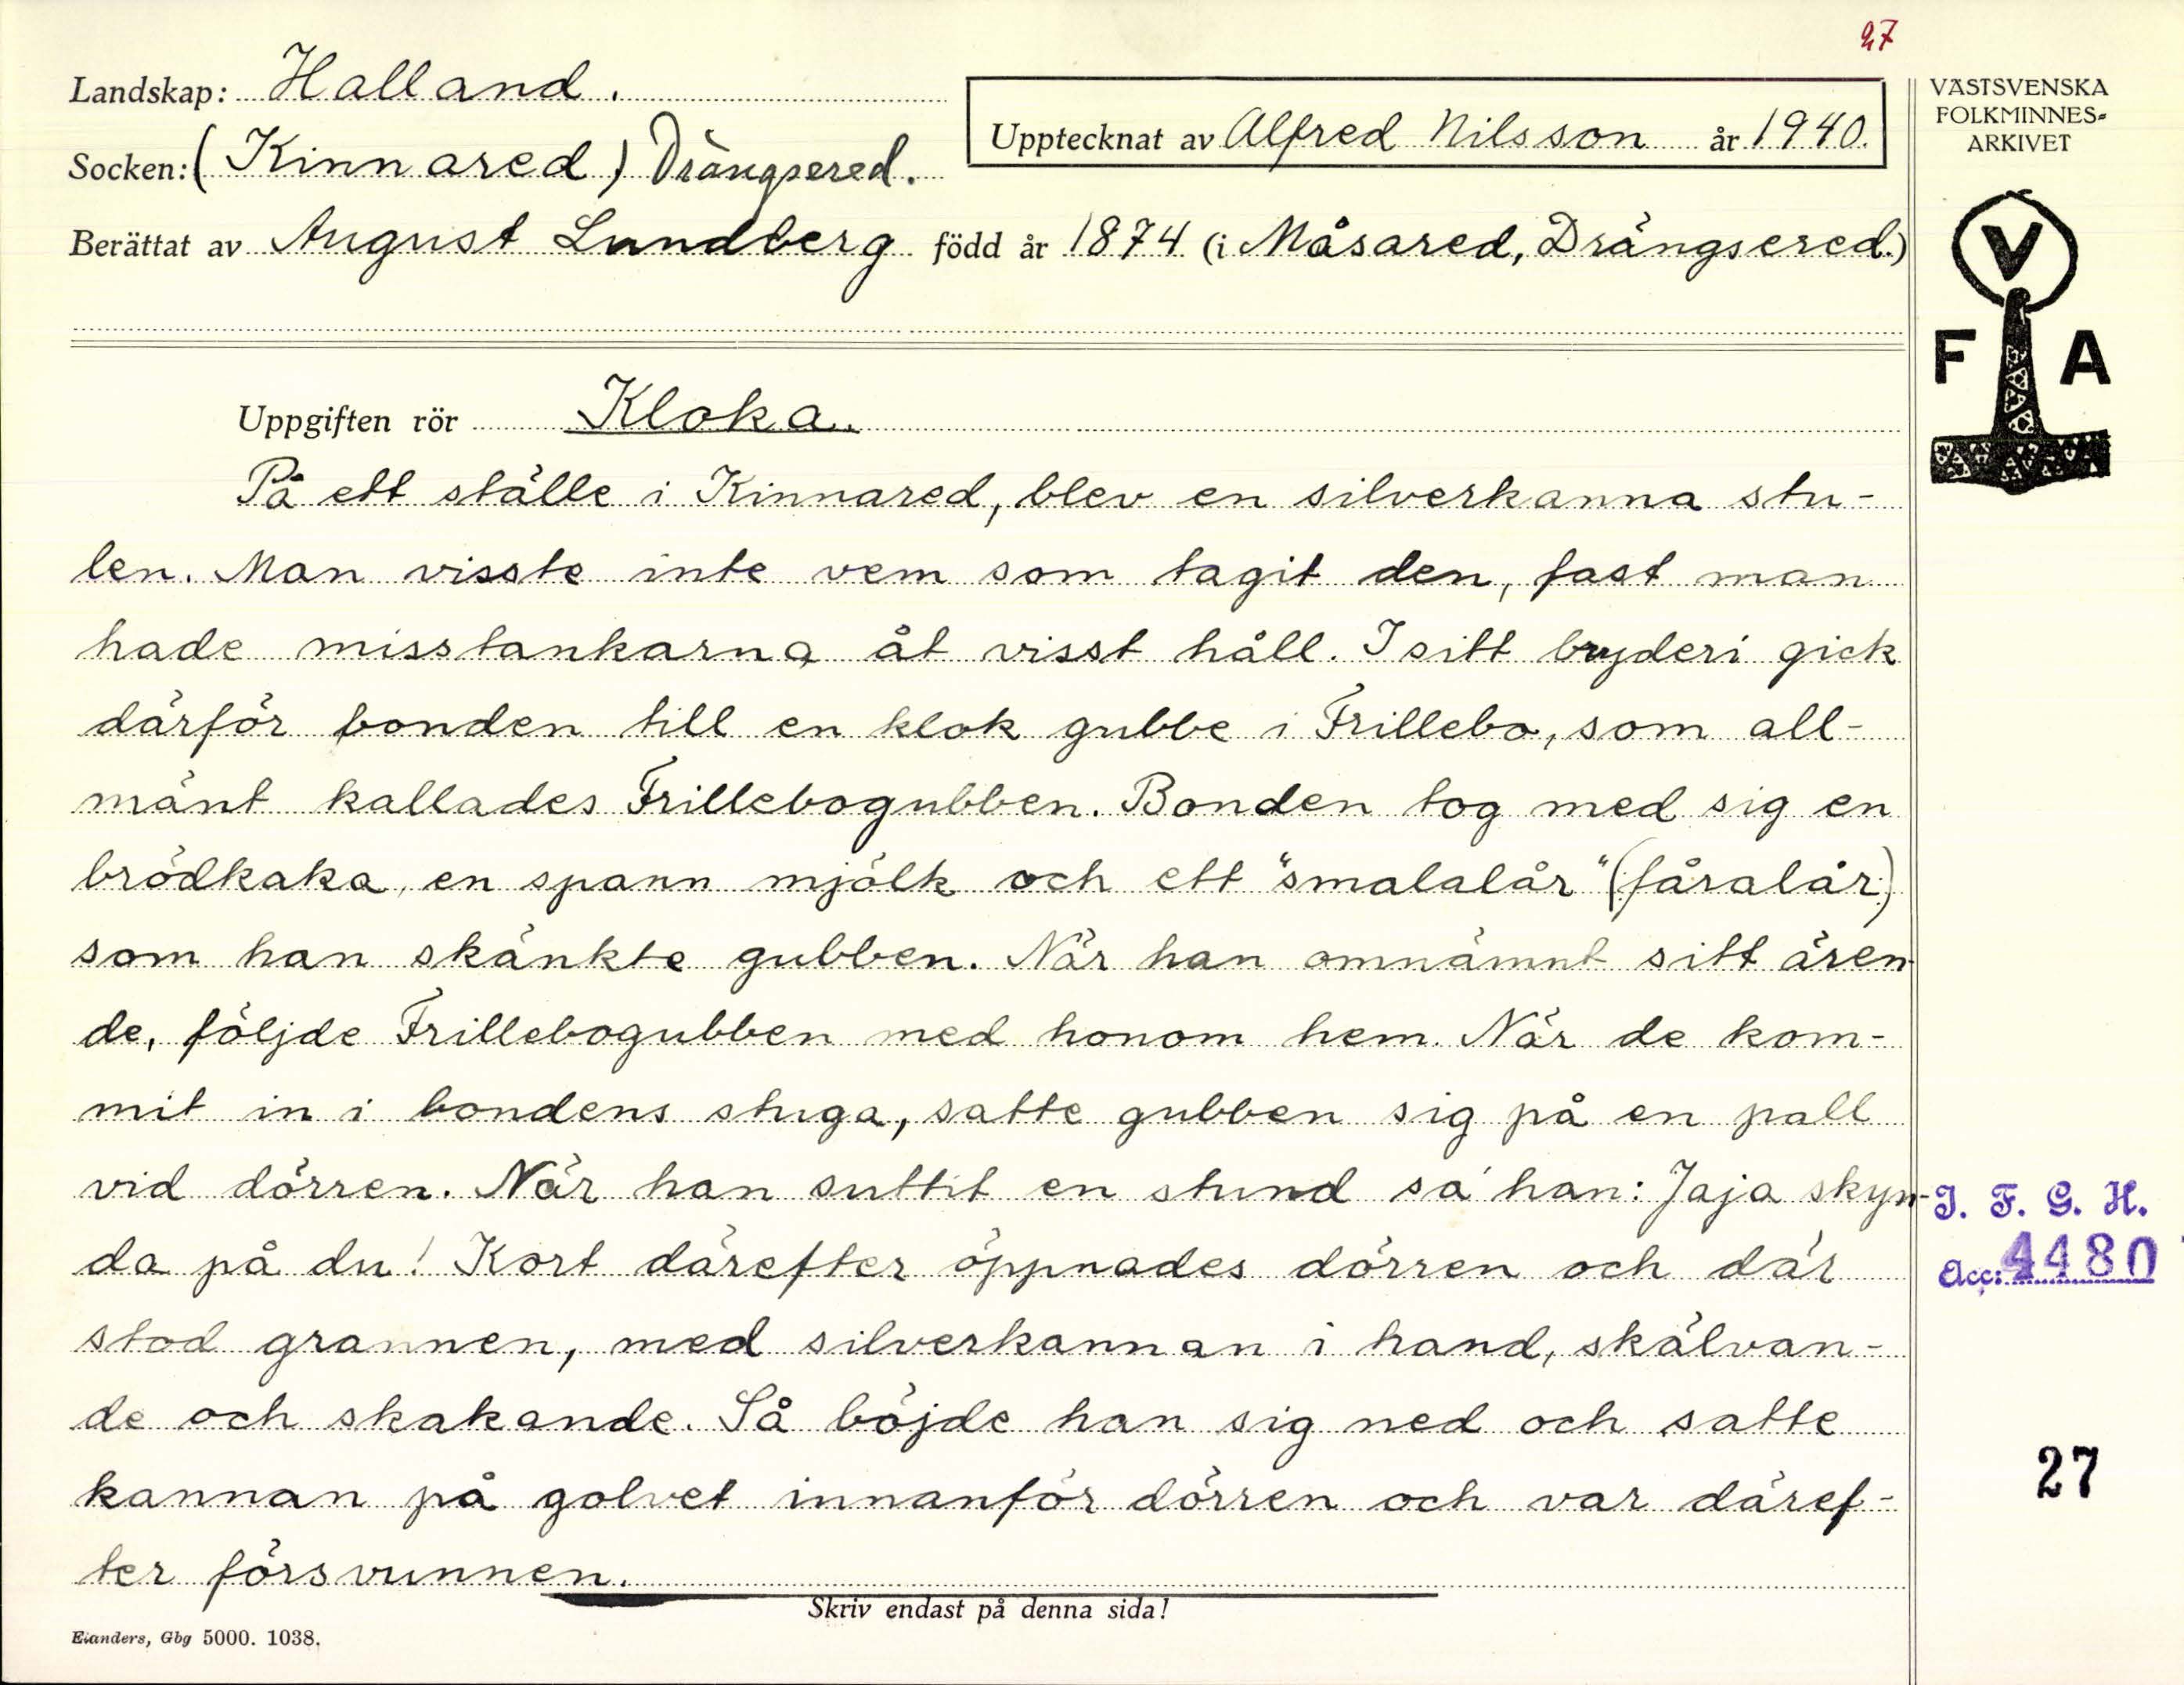 27
Landskap: Halland.
Socken: (Kinnared) Drängsered.
Upptecknat av Alfred Nilsson år 1940.
Berättat av August Lundberg född år 1874 (i Måsared, Drängsered.)
VÄSTSVENSKA
FOLKMINNES-
ARKIVET
V
F A
Uppgiften rör Kloka.
På ett ställe i Kinnared, blev en silverkanna stu-
len. Man visste inte vem som tagit den, fast man
hade misstankarna åt visst håll. I sitt bryderi gick
därför bonden till en klok gubbe i Frillebo, som all-
mänt kallades Frillebogubben. Bonden tog med sig en
brödkaka, en spann mjölk och ett "smalalår" (fåralår)
som han skänkte gubben. När han omnämnt sitt ären-
de, följde Frillebogubben med honom hem. När de kom-
mit in i bondens stuga, satte gubben sig på en pall
vid dörren. När han suttit en stund sa' han: Jaja skyn-
da på du! Kort därefter öppnades dörren och där
stod grannen, med silverkannan i hand, skälvan-
de och skakande. Så böjde han sig ned och satte
kannan på golvet innanför dörren och var däref-
ter försvunnen.
I. F. G. H.
Acc: 4480
27
Skriv endast på denna sida!
Elanders, Gbg 5000. 1038.